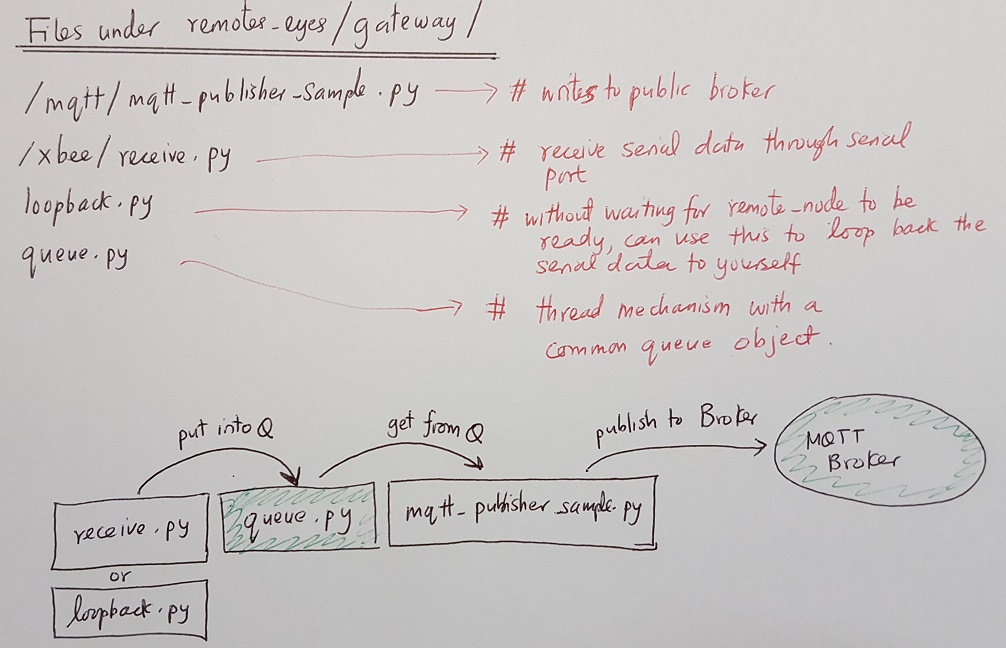 Files under remotes-eyes/gateway/
/mqtt/mqtt-publisher-sample.py → # writes to public broker
/xbee/receive.py → # receive serial data through serial
port
loopback.py → # without waiting for remote-node to be
ready, can use this to loop back the
serial data to yourself
queue.py → # thread mechanism with a
common queue object.
put into Q
get from Q
publish to Broker
MQTT
Broker
receive.py
queue.py
mqtt-publisher_sample.py
or
loopback.py